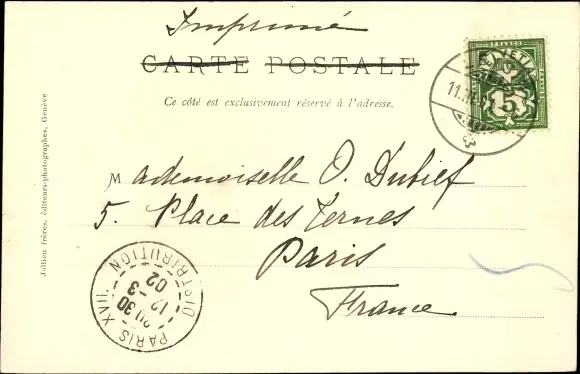 Imprimé
CARTE POSTALE
Ce côté est exclusivement réservé à l'adresse.
Mademoiselle O. Dubief
5. Place des Ternes
Paris
France
Jullien frères, éditeurs-photographes, Genève
FRANCO
HELVETIA
5
PARIS XVII
30
12-3
02
DISTRIBUTION